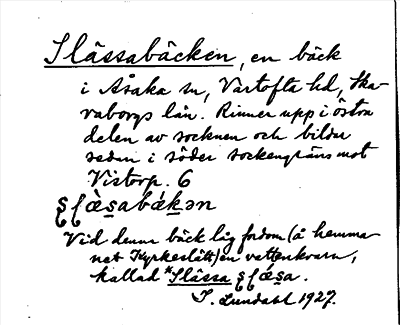 Slässabäcken, en bäck
i Åsaka sn, Vartofta hd, Ska-
raborgs län. Rinner upp i östra
delen av socknen och bildar
sedan i söder sockengräns mot
Vistorp. 6
Vid denna bäck låg fordom (å hemma-
net Kyrkeslätt) en vattenkvarn,
kallad *Slässa
S. Lundahl 1927.